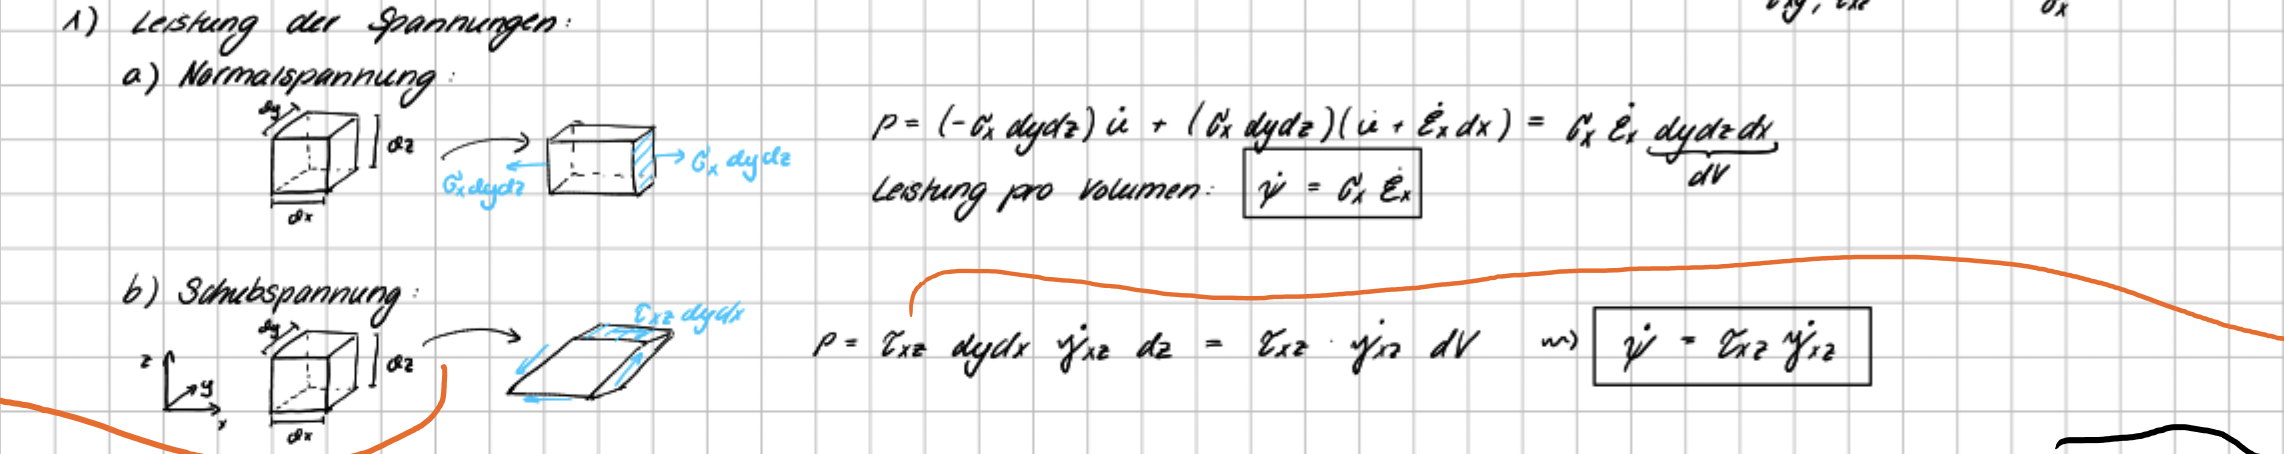 1) Leistung der Spannungen:
a) Normalspannung:
dy
dz
dx
σx dydz
σx dydz
P = (-σx dydz) u̇ + (σx dydz)(u̇ + ε̇x dx) = σx ε̇x dydzdx
dV
Leistung pro Volumen: ψ̇ = σx ε̇x
b) Schubspannung:
dy
dz
dx
z
y
x
τxz dydx
P = τxz dydx γ̇xz dz = τxz · γ̇xz dV ⇝ ψ̇ = τxz γ̇xz